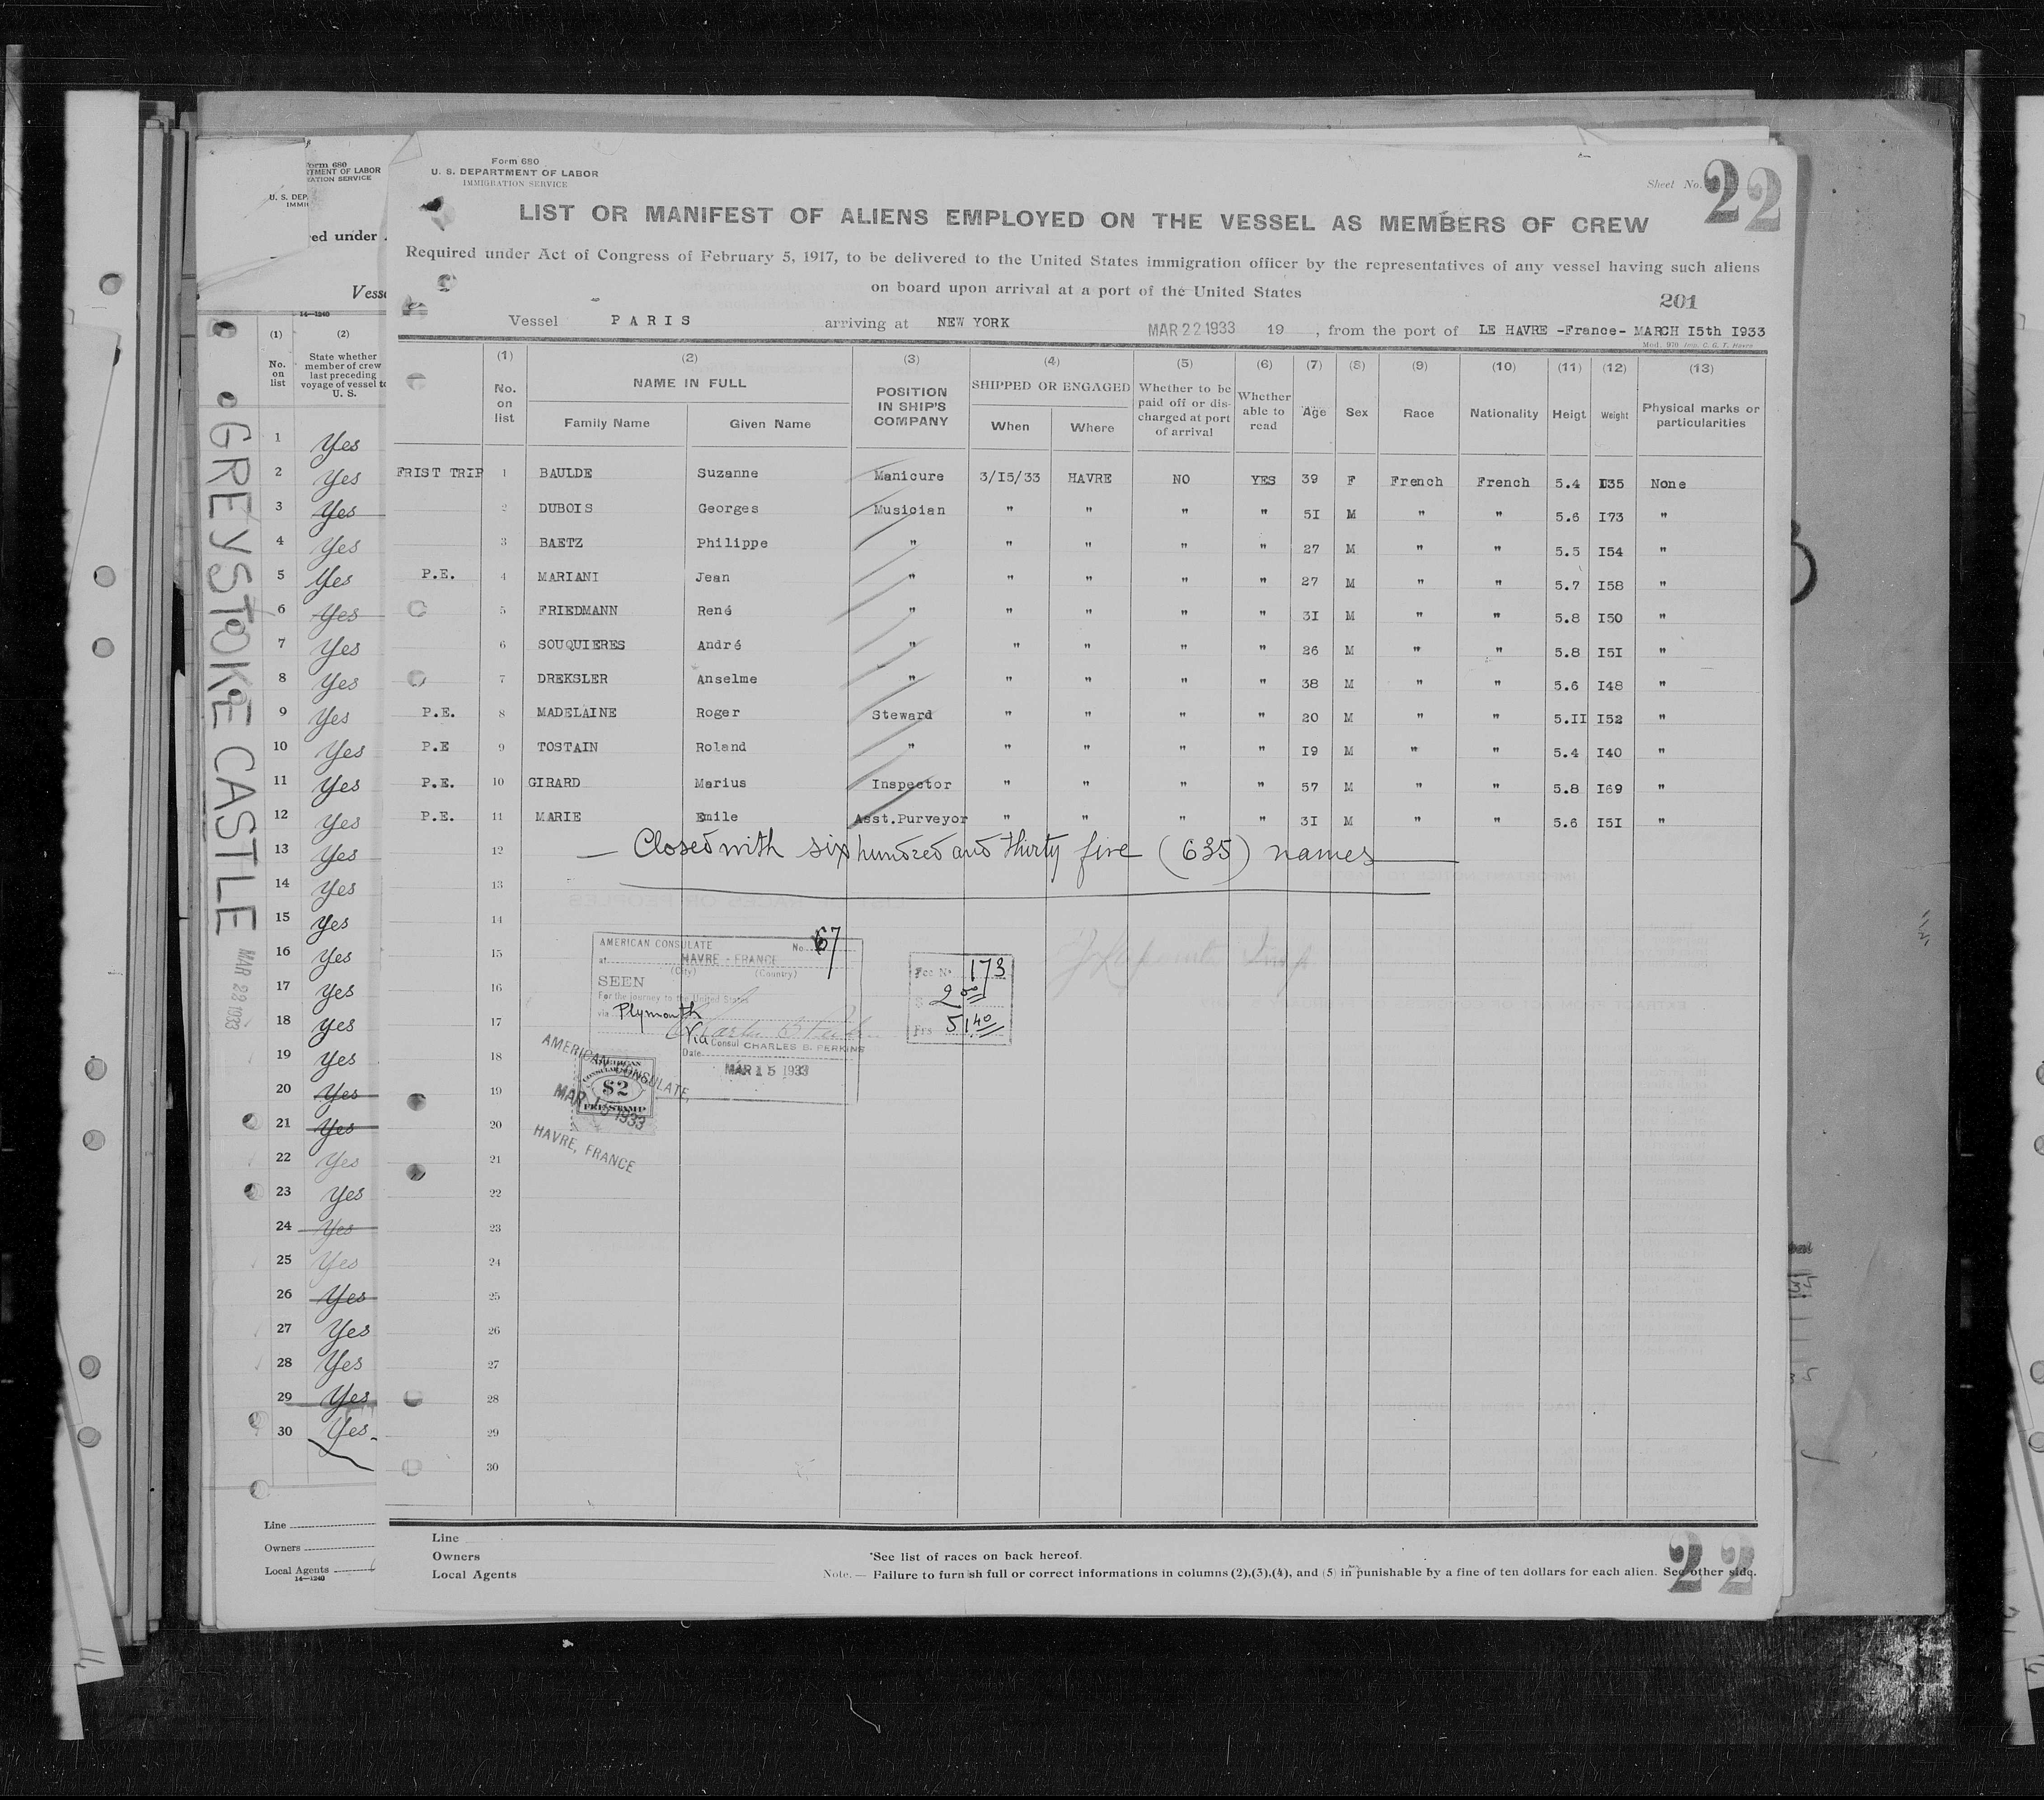 Form 680
U. S. DEPARTMENT OF LABOR
IMMIGRATION SERVICE
Sheet No. 22
LIST OR MANIFEST OF ALIENS EMPLOYED ON THE VESSEL AS MEMBERS OF CREW
Required under Act of Congress of February 5, 1917, to be delivered to the United States immigration officer by the representatives of any vessel having such aliens
on board upon arrival at a port of the United States
201
Vessel PARIS arriving at NEW YORK MAR 22 1933 19 , from the port of LE HAVRE -France- MARCH I5th I933
Mod. 970 Imp. C. G. T. Havre
(1) (2) (3) (4) (5) (6) (7) (8) (9) (10) (11) (12) (13)
No. on list NAME IN FULL Family Name Given Name POSITION IN SHIP'S COMPANY SHIPPED OR ENGAGED When Where Whether to be paid off or discharged at port of arrival Whether able to read Age Sex Race Nationality Heigt Weight Physical marks or particularities
FRIST TRIP 1 BAULDE Suzanne Manicure 3/I5/33 HAVRE NO YES 39 F French French 5.4 I35 None
2 DUBOIS Georges Musician " " " " 5I M " " 5.6 I73 "
3 BAETZ Philippe " " " " " 27 M " " 5.5 I54 "
P.E. 4 MARIANI Jean " " " " " 27 M " " 5.7 I58 "
5 FRIEDMANN René " " " " " 3I M " " 5.8 I50 "
6 SOUQUIERES André " " " " " 26 M " " 5.8 I5I "
7 DREKSLER Anselme " " " " " 38 M " " 5.6 I48 "
P.E. 8 MADELAINE Roger Steward " " " " 20 M " " 5.II I52 "
P.E 9 TOSTAIN Roland " " " " " I9 M " " 5.4 I40 "
P.E. 10 GIRARD Marius Inspector " " " " 57 M " " 5.8 I69 "
P.E. 11 MARIE Emile Asst.Purveyor " " " " 3I M " " 5.6 I5I "
12 — Closed with six hundred and thirty five (635) names
13
14
15
16
17
18
19
20
21
22
23
24
25
26
27
28
29
30
AMERICAN CONSULATE No. 67
at HAVRE - FRANCE
(City) (Country)
SEEN
For the journey to the United States
via Plymouth
Via Consul CHARLES B. PERKINS
Date
MAR 15 1933
Fee No 173
$ 2 00
Frs 51 40
AMERICAN CONSULATE,
MAR 15 1933
HAVRE, FRANCE
AMERICAN
CONSULAR SERVICE
$2
FEE STAMP
Line
Owners
Local Agents
*See list of races on back hereof.
Note. — Failure to furnish full or correct informations in columns (2),(3),(4), and (5) in punishable by a fine of ten dollars for each alien. See other side.
22
Form 680
TMENT OF LABOR
RATION SERVICE
U. S. DEP
IMMI
ed under
Vess
14—1240
(1) (2)
No. on list
State whether
member of crew
last preceding
voyage of vessel to
U. S.
1 Yes
2 Yes
3 Yes
4 Yes
5 Yes
6 Yes
7 Yes
8 Yes
9 Yes
10 Yes
11 Yes
12 Yes
13 Yes
14 Yes
15 Yes
16 Yes
17 Yes
18 Yes
19 Yes
20 Yes
21 Yes
22 Yes
23 Yes
24 Yes
25 Yes
26 Yes
27 Yes
28 Yes
29 Yes
30 Yes
Line
Owners
Local Agents
14—1240
GREYSTOKE CASTLE
MAR 22 1933